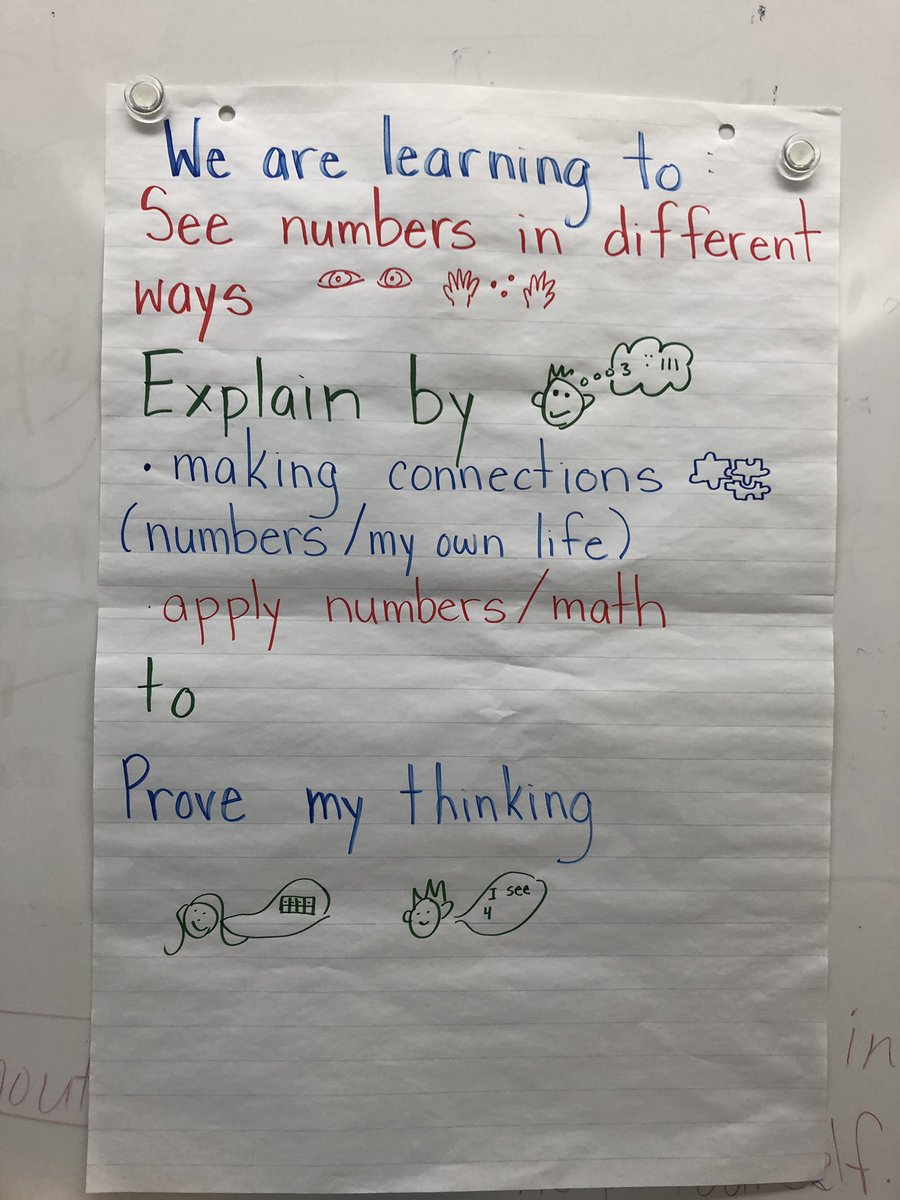 We are learning to :
See numbers in different
ways
Explain by
3 III
• making connections
(numbers/my own life)
· apply numbers/math
to
Prove my thinking
I see
4
in